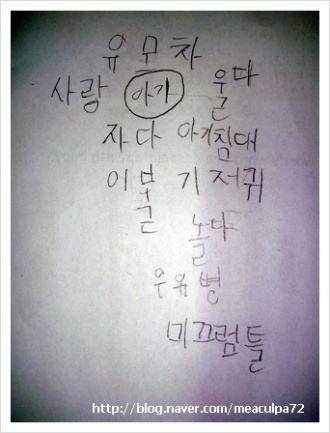 유무차
사랑 아가 울다
자다 아기침대
이불 기저귀
놀다
우유병
미끄럼틀
http://blog.naver.com/meaculpa72